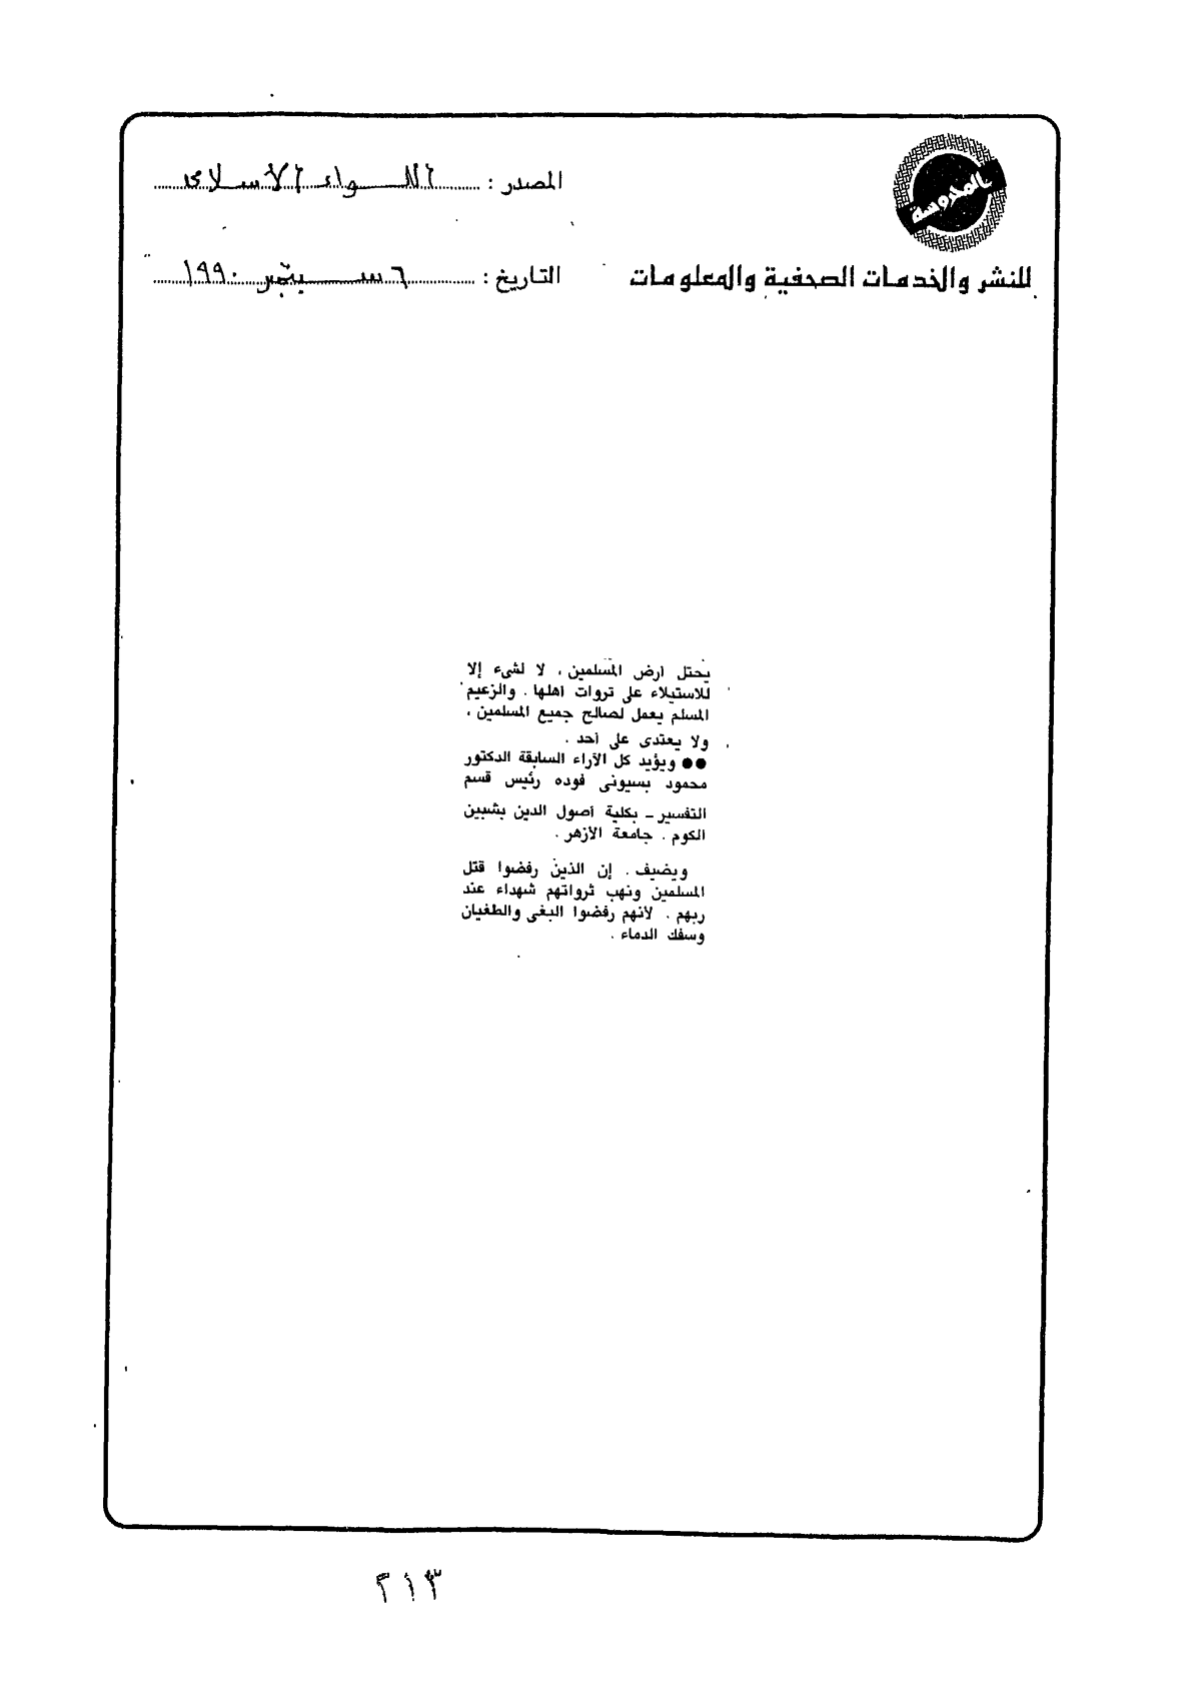 المحروسة
للنشر والخدمات الصحفية والمعلومات
المصدر : اللواء الاسلامى
التاريخ : ٦ سبتمبر ١٩٩٠
يحتل ارض المسلمين ، لا لشىء إلا
للاستيلاء على ثروات اهلها . والزعيم
المسلم يعمل لصالح جميع المسلمين ،
ولا يعتدى على أحد .
●● ويؤيد كل الآراء السابقة الدكتور
محمود بسيونى فوده رئيس قسم
التفسير ـ بكلية أصول الدين بشبين
الكوم . جامعة الأزهر .
ويضيف . إن الذين رفضوا قتل
المسلمين ونهب ثرواتهم شهداء عند
ربهم . لأنهم رفضوا البغى والطغيان
وسفك الدماء .
٢١٣